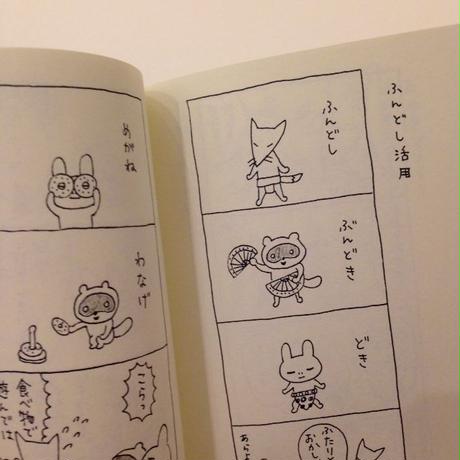 ふんどし活用
ふんどし
ぶんどき
どき
ふたりと
おかし
あらよ
めがね
わなげ
こらっ
食べ物で
遊んでは